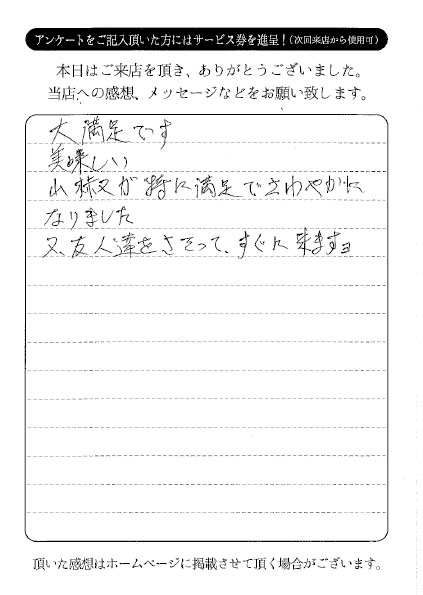 アンケートをご記入頂いた方にはサービス券を進呈！（次回来店から使用可）
本日はご来店を頂き、ありがとうございました。
当店への感想、メッセージなどをお願い致します。
大満足です
美味しい
山菜又が特に満足でさわやかに
なりました
又、友人達をさそって、すぐに来ますヨ
頂いた感想はホームページに掲載させて頂く場合がございます。